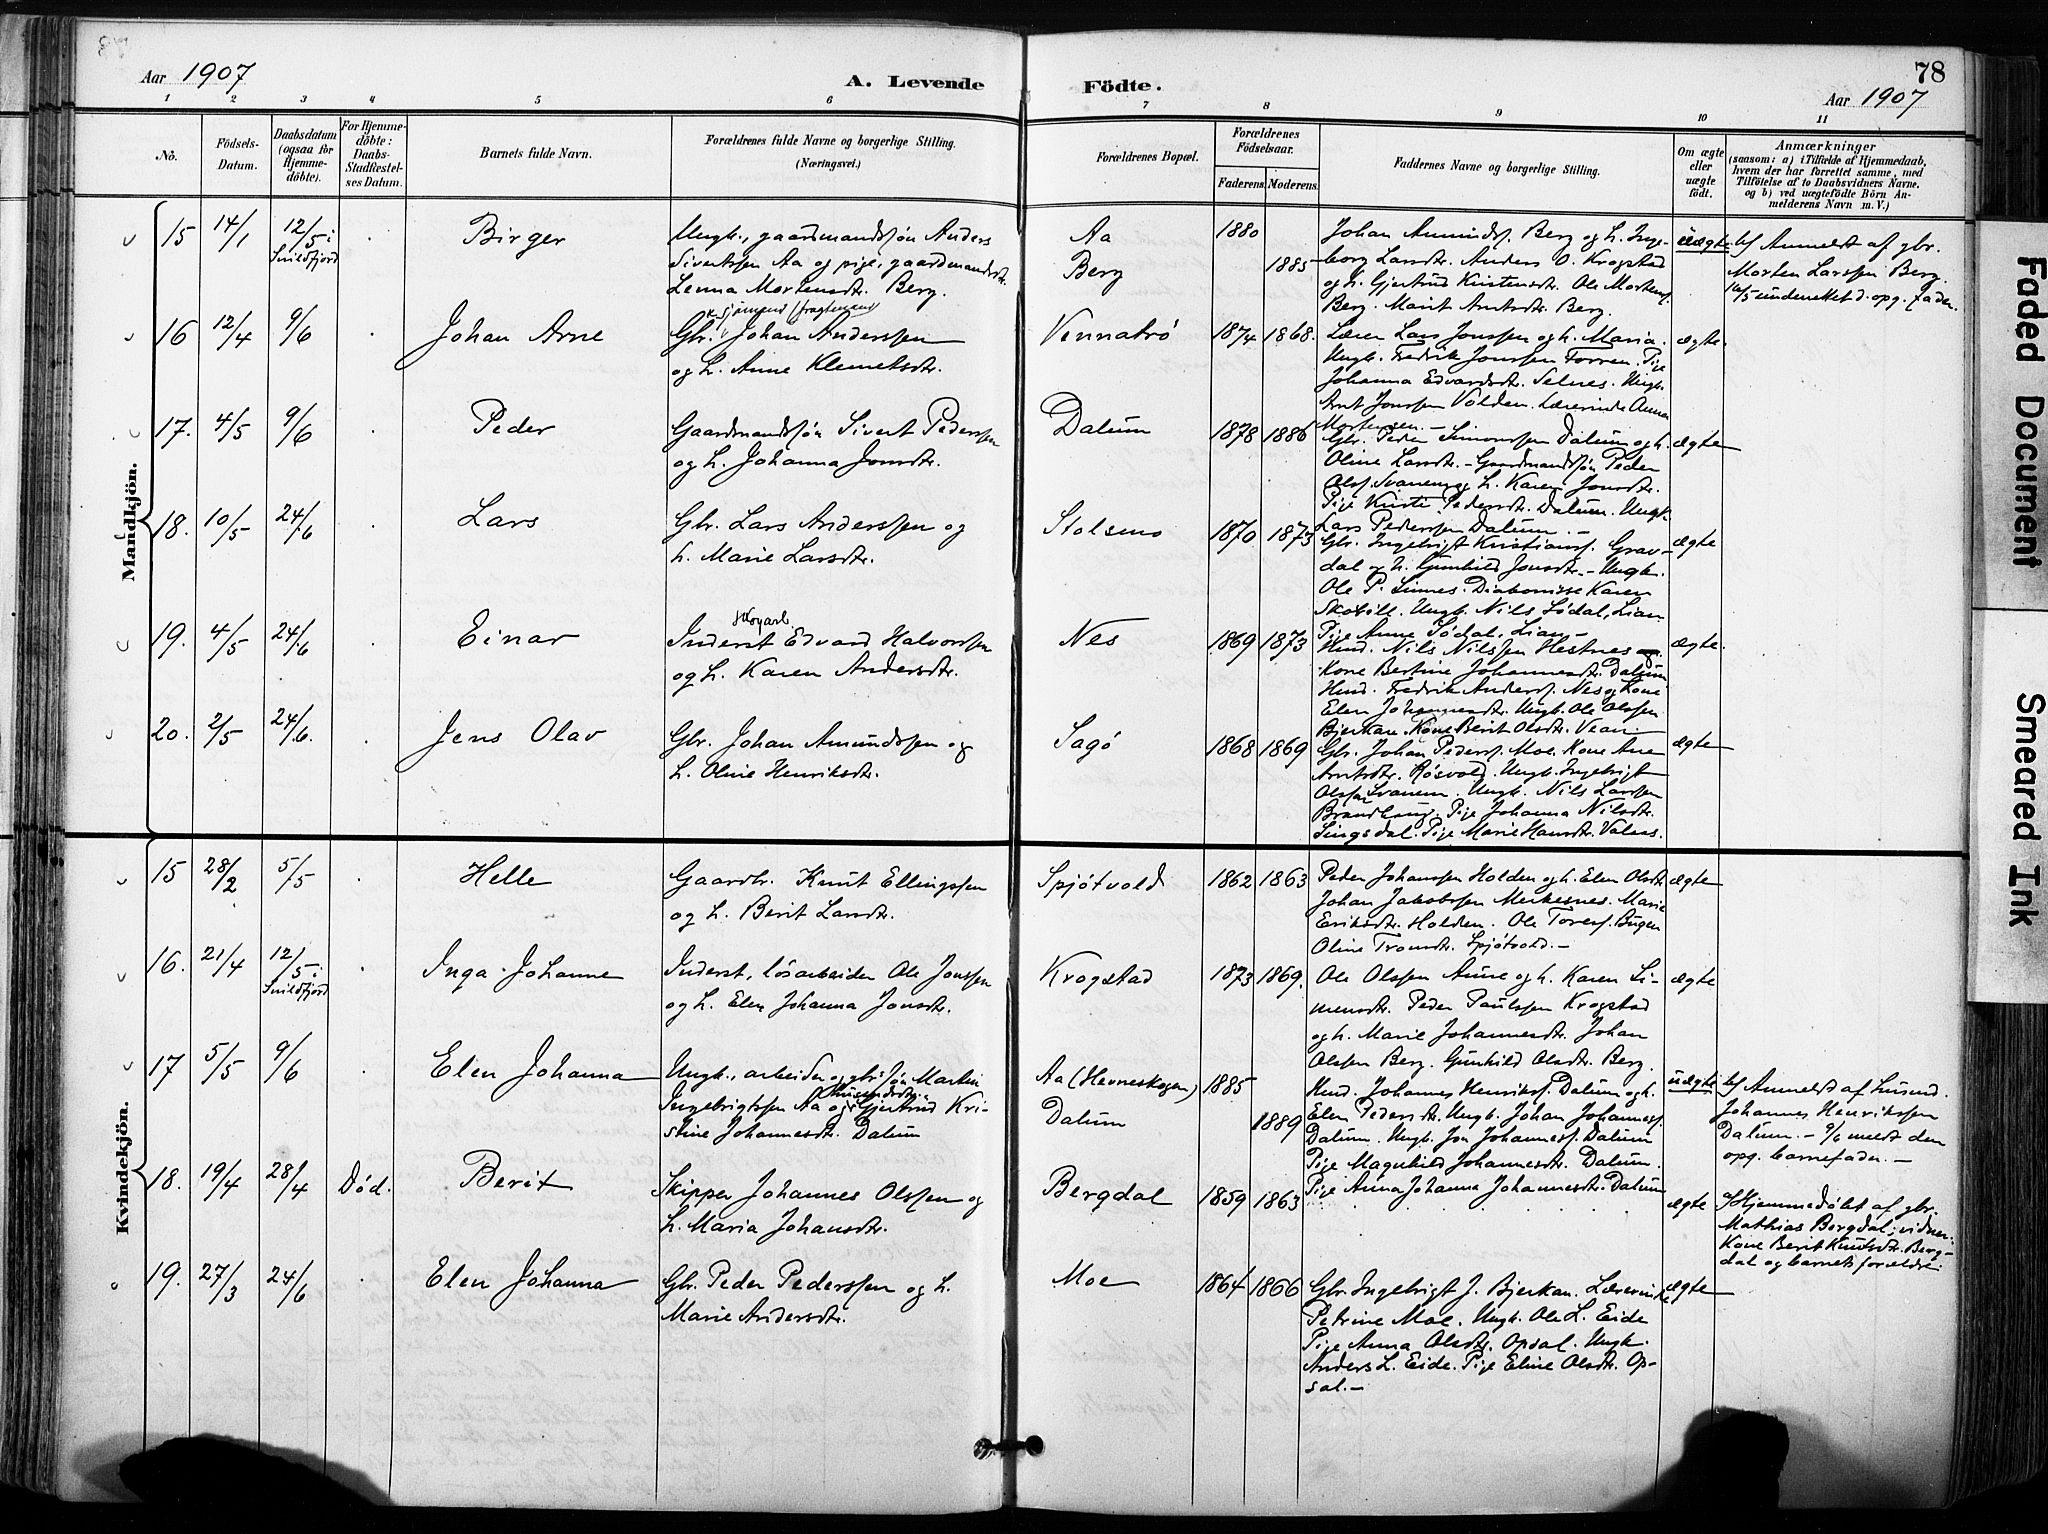 Aar 1907
A. Levende
Födte.
78
Aar 1907
1 2 3 4 5 6 7 8 9 10 11
No.
Födsels-
Datum.
Daabsdatum
(ogsaa for
Hjemme-
döbte).
For Hjemme-
döbte:
Daabs-
Stadfæstel-
ses Datum.
Barnets fulde Navn.
Forældrenes fulde Navne og borgerlige Stilling.
(Næringsvei.)
Forældrenes Bopæl.
Forældrenes
Födselsaar.
Faderens. Moderens.
Faddernes Navne og borgerlige Stilling.
Om ægte
eller
uægte
født.
Anmærkninger
(saasom: a) i Tilfælde af Hjemmedaab,
hvem der har forrettet samme, med
Tilföielse af to Daabsvidners Navne.
og b) ved uægtefödte Börn An-
melderens Navn m. V.)
Mandkjön.
15 14/1 12/5 i
Snildfjord
Birger
Ungk., gaardmandssøn Anders
Sivertssen Aa og pige, gaardmandsdtr.
Lenna Mortensdtr. Berg.
Aa
Berg
1880
1885
Johan Amundsf. Berg og h. Inge-
borg Larsdtr. Anders O. Krogstad
og h. Gjertrud Kirstensdtr. Ole Mortens.
Berg. Marit Arntsdtr. Berg.
uægte
b/ Anmeldt af gbr.
Morten Larssen Berg.
16/5 underrettet d. opg. fader.
16 12/4 9/6
Johan Arne
Gbr. Johan Anderssen
og h. Anne Klemetsdtr.
Vennatrø
1874 1868.
Lærer Lars Jonssen og h. Maria.
Ungk. Fredrik Jonssen Forren. Pige
Johanna Edvardsdtr. Selnes. Ungk.
Arnt Jonssen Volden. Lærerinde Anna
Mortensen.-
ægte.
17. 4/5 9/6
Peder
Gaardmandssøn Sivert Pederssen
og h. Johanna Jonsdtr.
Dalum
1878 1886
Gbr. Peder Simonssen Dalum og h.
Oline Larsdtr. - Gaardmandssøn Peder
Olsf. Svanem og h. Karen Jonsdtr.
Pige Kristi Pedersdtr. Dalum. Ungk.
Lars Pederssen Dalum.-
ægte
18. 10/5 24/6
Lars
Gbr. Lars Anderssen og
h. Marie Larsdtr.
Stolsmo
1870 1873
Gbr. Ingebrigt Kristiansf. Grav-
dal og h. Gunhild Jonsdtr. - Ungk.
Ole P. Sinnes. Diakonisse Karen
Ungk. Nils Södal, Lian
Pige Anne Södal, Lian -
ægte
19. 4/5 24/6
Einar
Inderst Edvard Halvorssen
og h. Karen Andersdtr.
Nes
1869 1873
Husd. Nils Nilssen Hestnes og
Kone Bertine Johannesdtr. Dalum
Husd. Fredrik Anderss. Nes og Kone
Elen Johannesdtr. Ungk. Ole Olssen
Bjerkan. Kone Berit Olsdtr. Vean.-
ægte.
20. 2/5 24/6.
Jens Olav
Gbr. Johan Amundssen og
h. Oline Henriksdtr.
Sagø
1868 1869
Gbr. Johan Pederss. Moe. Kone Ane
Arntsdtr. Røsvold. Ungk. Ingebrigt
Olssen Svanem. Ungk. Nils Larssen
Brandhaug. Pige Johanna Nilsdtr.
Singsdal. Pige Marie Hansdtr. Valaas.
ægte
Kvindekjön.
15 28/2 5/5
Helle
Gaardbr. Knut Ellingssen
og h. Berit Larsdtr.
Spjøtvold
1862 1863
Peder Johanssen Holden og h. Elen Olsdtr.
Johan Jakobssen Merkesnes. Marie
Eriksdtr. Holden. Ole Toress. Bugen
Oline Tronsdtr. Spjøtvold.-
ægte
16. 21/4 12/5 i
Snildfjord
Inga Johanne
Inderst, løsarbeider Ole Jonssen
og h. Elen Johanna Jonsdtr.
Krogstad
1873 1869.
Ole Olssen Aune og h. Karen Si-
mensdtr. Peder Paulssen Krogstad
og h. Marie Johannesdtr. Johan
Olssen Berg. Gunhild Olsdtr. Berg.
ægte
17 5/5 9/6
Elen Johanna
Ungk., arbeider og gbr. søn Martin
Ingebrigtssen Aa og Gjertrud Kri-
stine Johannesdtr. Dalum
Aa (Hevneskogen)
Dalum
1885
1889
Husd. Johannes Henrikss. Dalum og h.
Elen Pedersdtr. Ungk. Johan Johanness.
Dalum. Ungk. Jon Johanness. Dalum
Pige Magnhild Johannesdtr. Dalum.
Pige Anna Johanna Johannesdtr. Dalum
uægte
b/ Anmeldt af husmd.
Johannes Henrikssen
Dalum. - 9/6 meldt den
opg. barnefader.-
18. 19/4 28/4 Død.
Berit
Skipper Johannes Olssen og
h. Maria Johansdtr.
Bergdal
1859 1863
ægte
a/ Hjemmedøbt af gbr.
Mathias Bergdal; vidner:
Kone Berit Knutsdtr. Berg-
dal og barnets forældre.
19. 27/3 24/6
Elen Johanna
Gbr. Peder Pederssen og h.
Marie Andersdtr.
Moe
1864 1866
Gbr. Ingebrigt J. Bjerkan. Lærerinde
Petrine Moe. Ungk. Ole L. Eide
Pige Anna Olsdtr. Opsal. Ungk.
Anders L. Eide. Pige Eline Olsdtr. Op-
sal.-
ægte
Faded Document
Smeared Ink